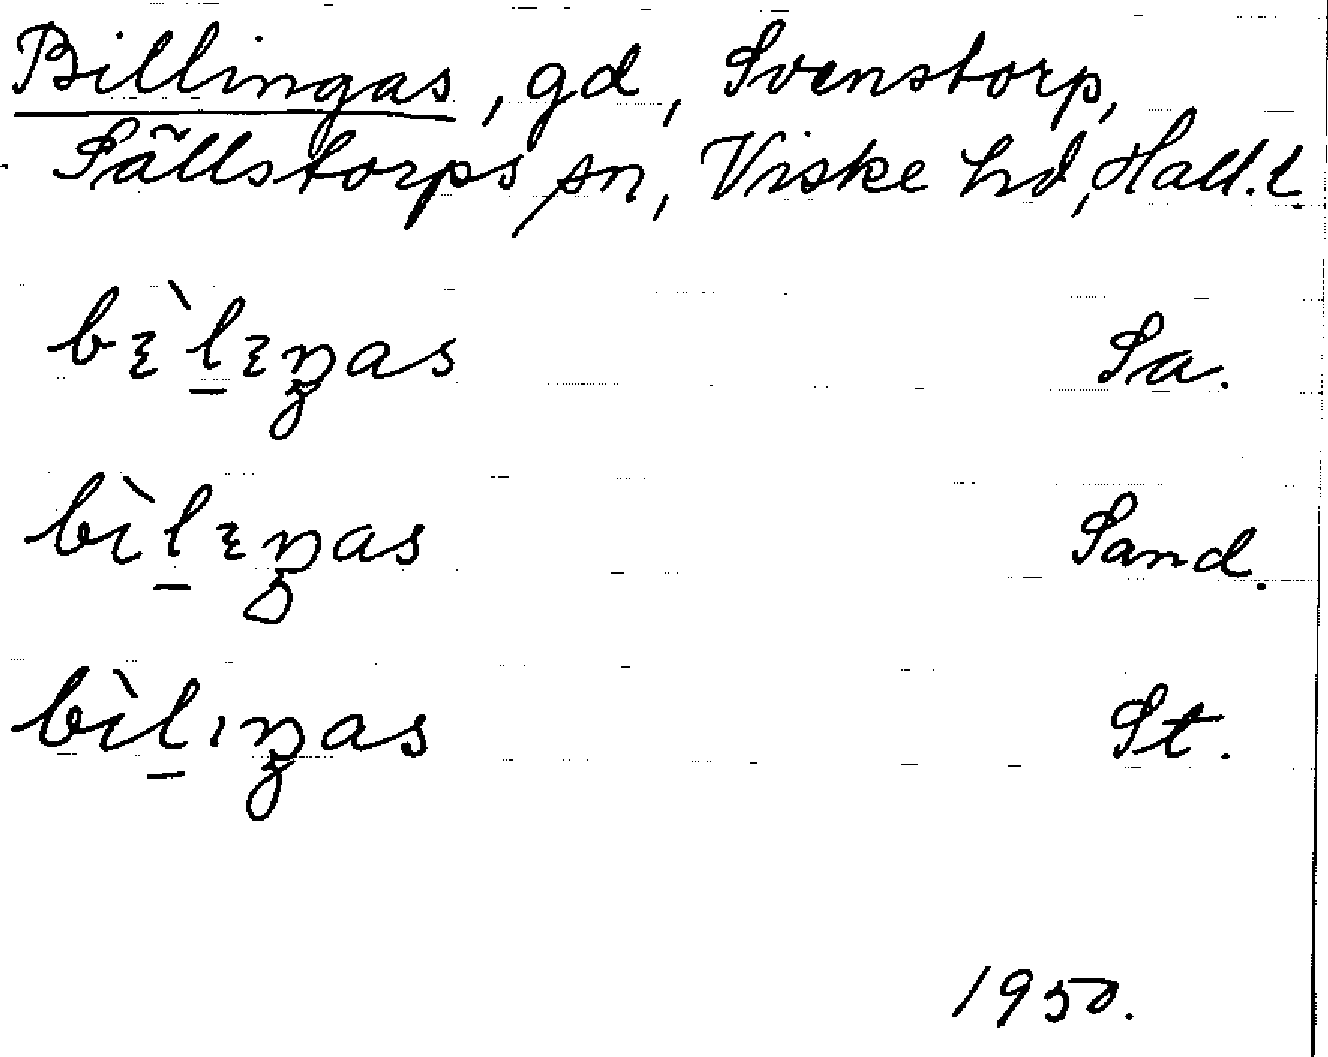 Billingas, gd, Svenstorp,
Sällstorps sn, Viske hd, Hall. l.
bὲ̀lɛŋas Sa.
bìlɛŋas Sand.
bìlıŋas St.
1950.